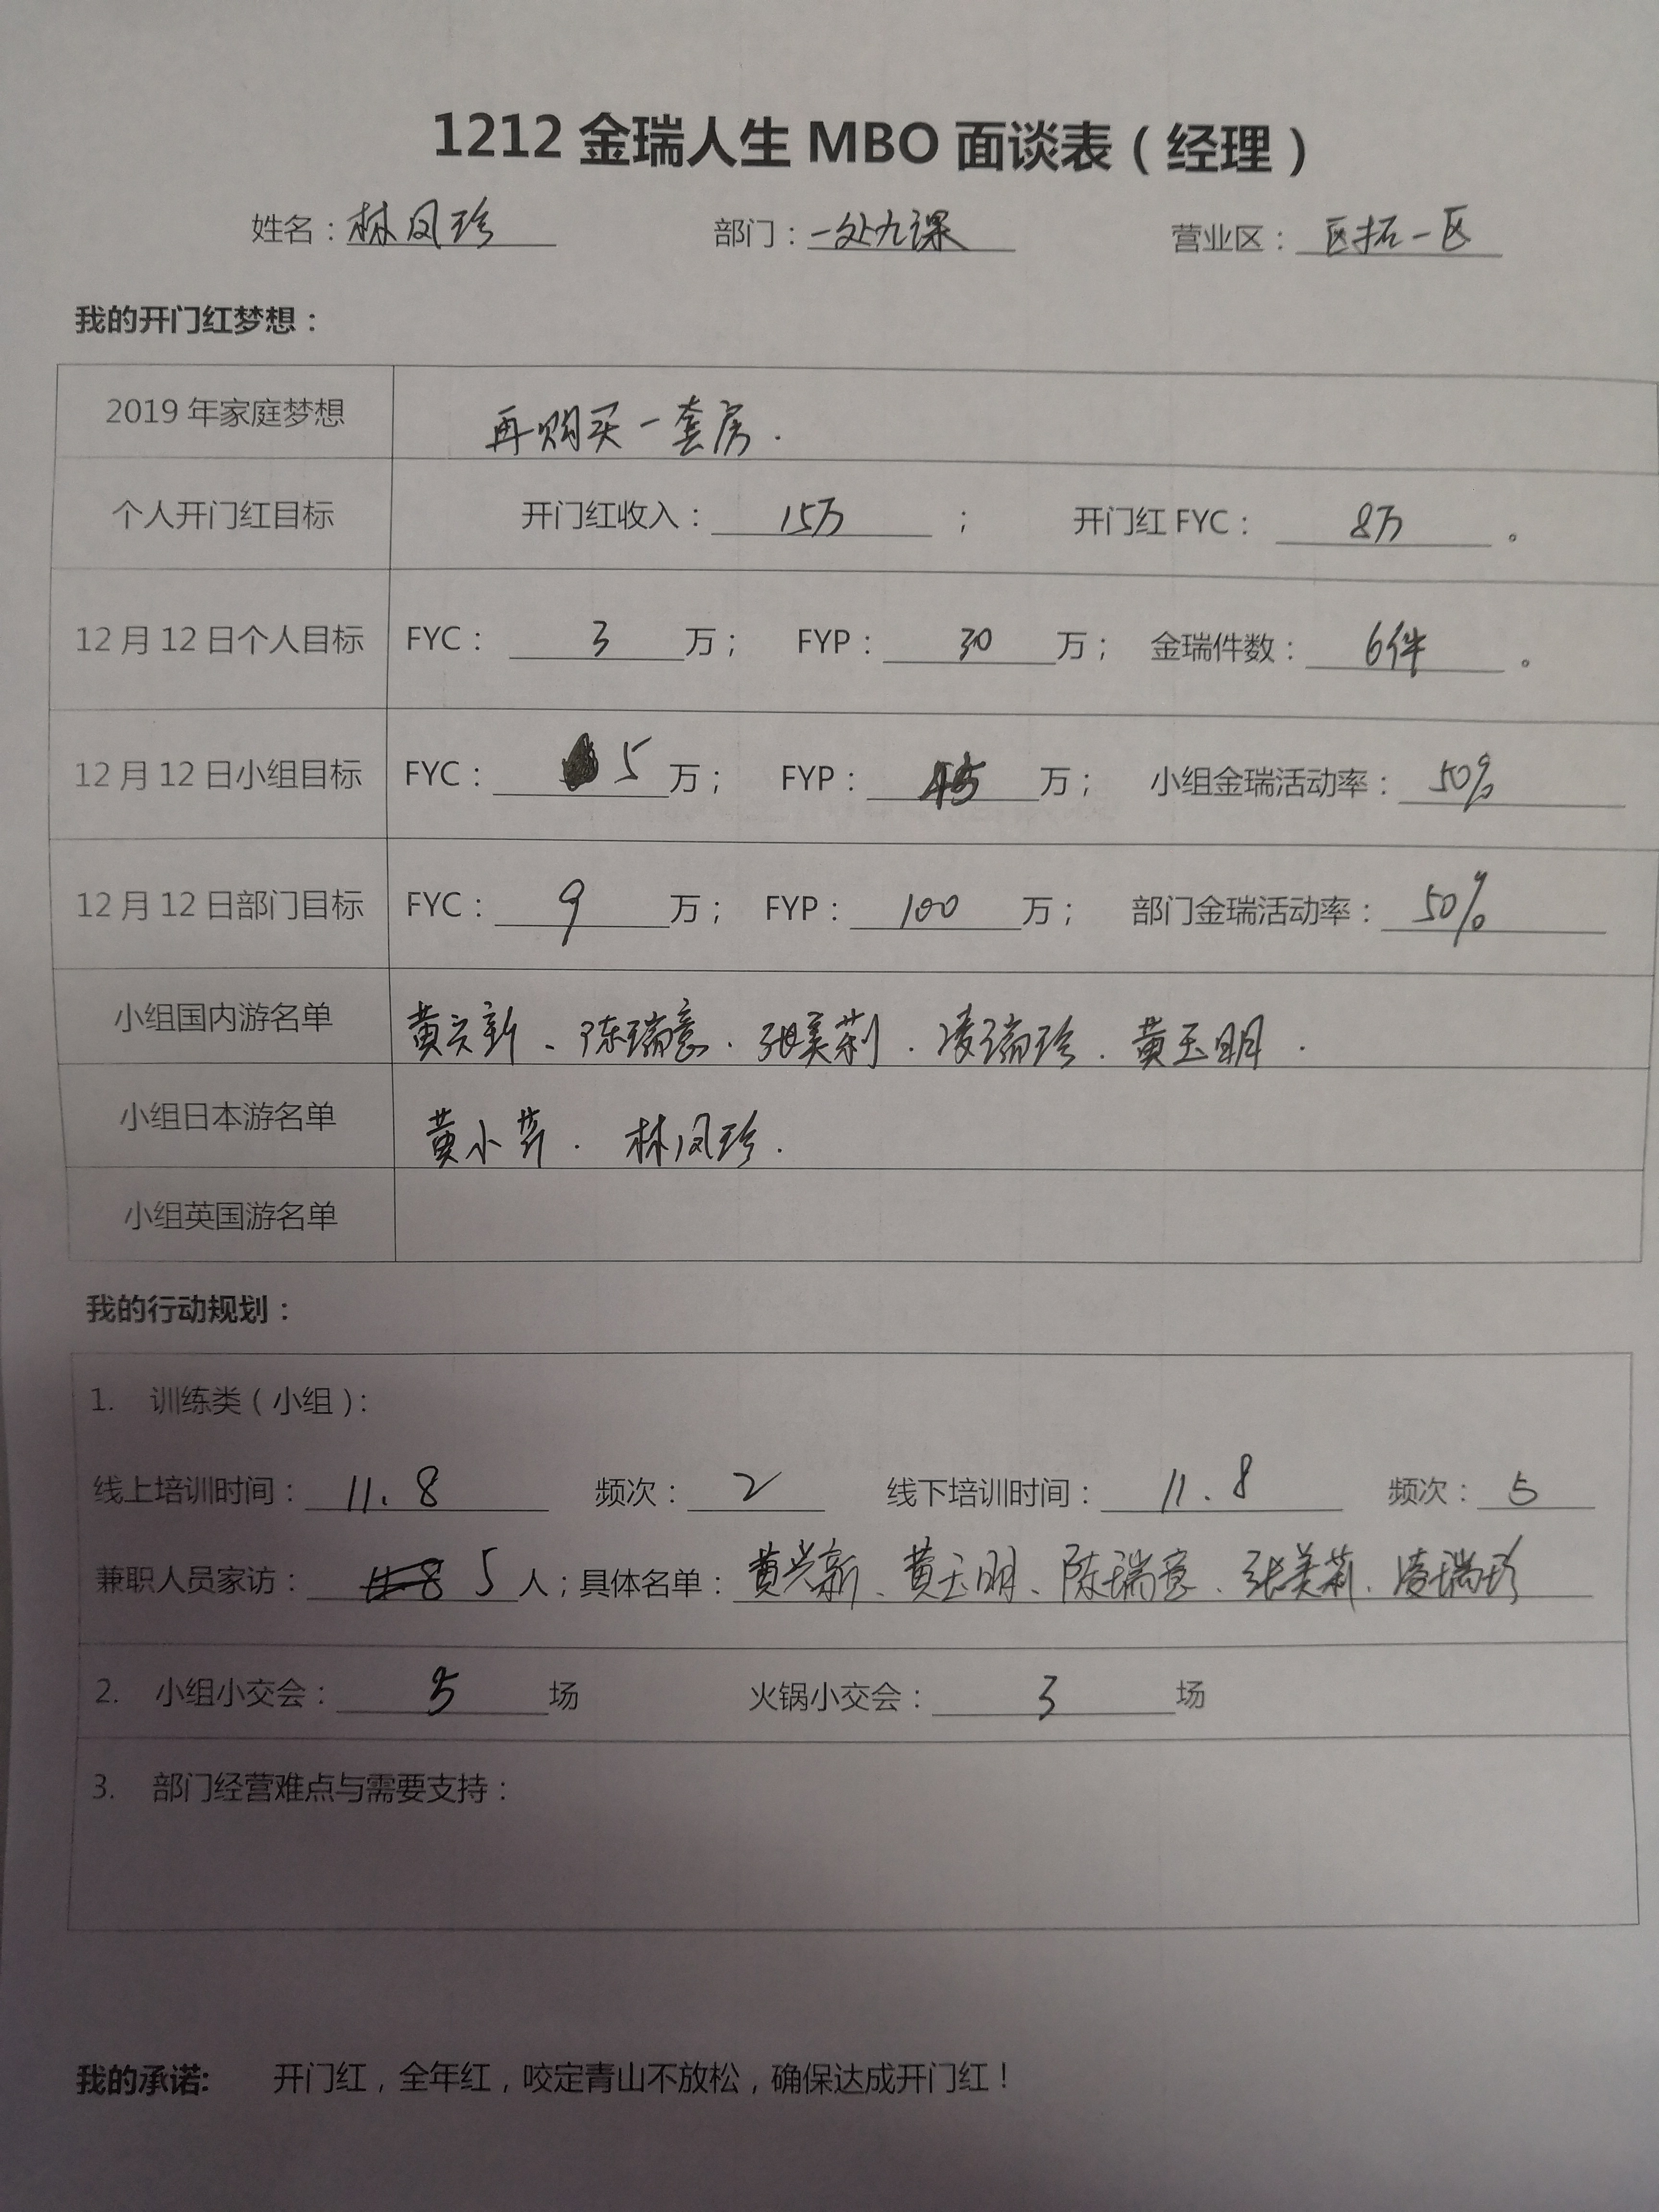 1212 金瑞人生 MBO 面谈表（经理）
姓名：林凤珍 部门：一处九课 营业区：区拓一区
我的开门红梦想：
2019 年家庭梦想 再购买一套房.
个人开门红目标 开门红收入：15万； 开门红 FYC：8万。
12 月 12 日个人目标 FYC：3万； FYP：30万； 金瑞件数：6件。
12 月 12 日小组目标 FYC：5万； FYP：45万； 小组金瑞活动率：50%
12 月 12 日部门目标 FYC：9万； FYP：100万； 部门金瑞活动率：50%
小组国内游名单 黄兴新、陈瑞意.张美莉.凌瑞珍.黄玉明.
小组日本游名单 黄小芹.林凤珍.
小组英国游名单
我的行动规划：
1. 训练类（小组）：
线上培训时间：11.8 频次：2 线下培训时间：11.8 频次：5
兼职人员家访：5人；具体名单：黄兴新、黄玉明、陈瑞意、张美莉、凌瑞珍
2. 小组小交会：5场 火锅小交会：3场
3. 部门经营难点与需要支持：
我的承诺: 开门红，全年红，咬定青山不放松，确保达成开门红！